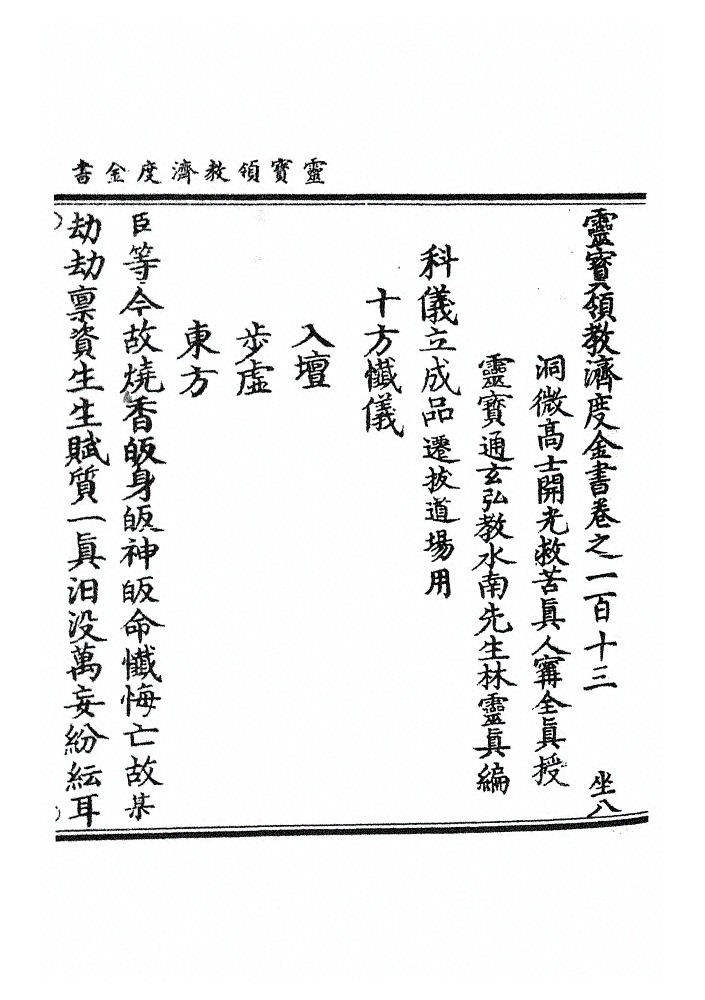 靈寶領教濟度金書
靈寶領教濟度金書卷之一百十三 坐八
洞微高士開光救苦眞人寗全眞授
靈寶通玄弘教水南先生林靈眞編
科儀立成品 遷拔道場用
十方懺儀
入壇
步虛
東方
臣等今故燒香皈身皈神皈命懺悔亡故某
劫劫禀資生生賦質一眞汨没萬妄紛紜耳